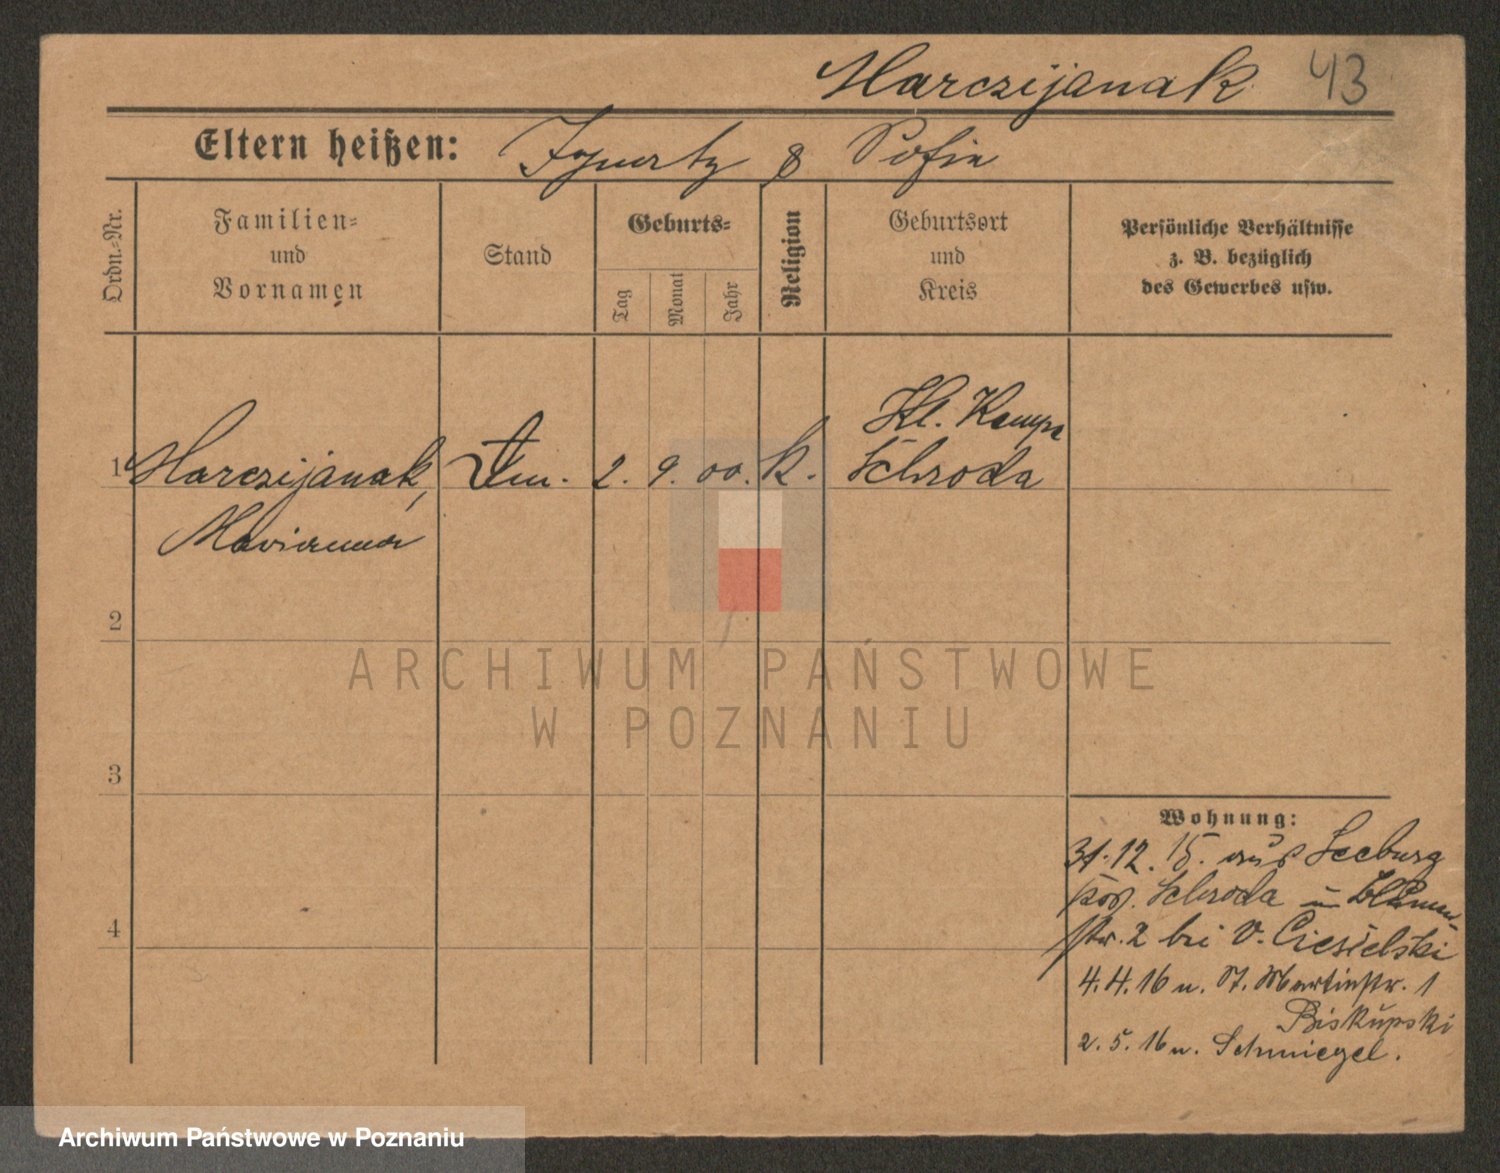 Marczijanak 43
Eltern heißen: Ignatz & Sofie
Ordn.-Nr.
Familien-
und
Vornamen
Stand
Geburts-
Tag
Monat
Jahr
Religion
Geburtsort
und
Kreis
Persönliche Verhältnisse
z. B. bezüglich
des Gewerbes usw.
Kl. Kempa
1 Marczijanak, 2. 9. 00. K. Schroda
Marianna
2
ARCHIWUM PAŃSTWOWE
W POZNANIU
3
Wohnung:
31.12.15. aus Seeburg
Schroda n Blumen
str. 2 bei V. Ciesielski
4
4.4.16 n. St. Martinstr. 1
Biskupski
2.5.16 n. Schmiegel.
Archiwum Państwowe w Poznaniu